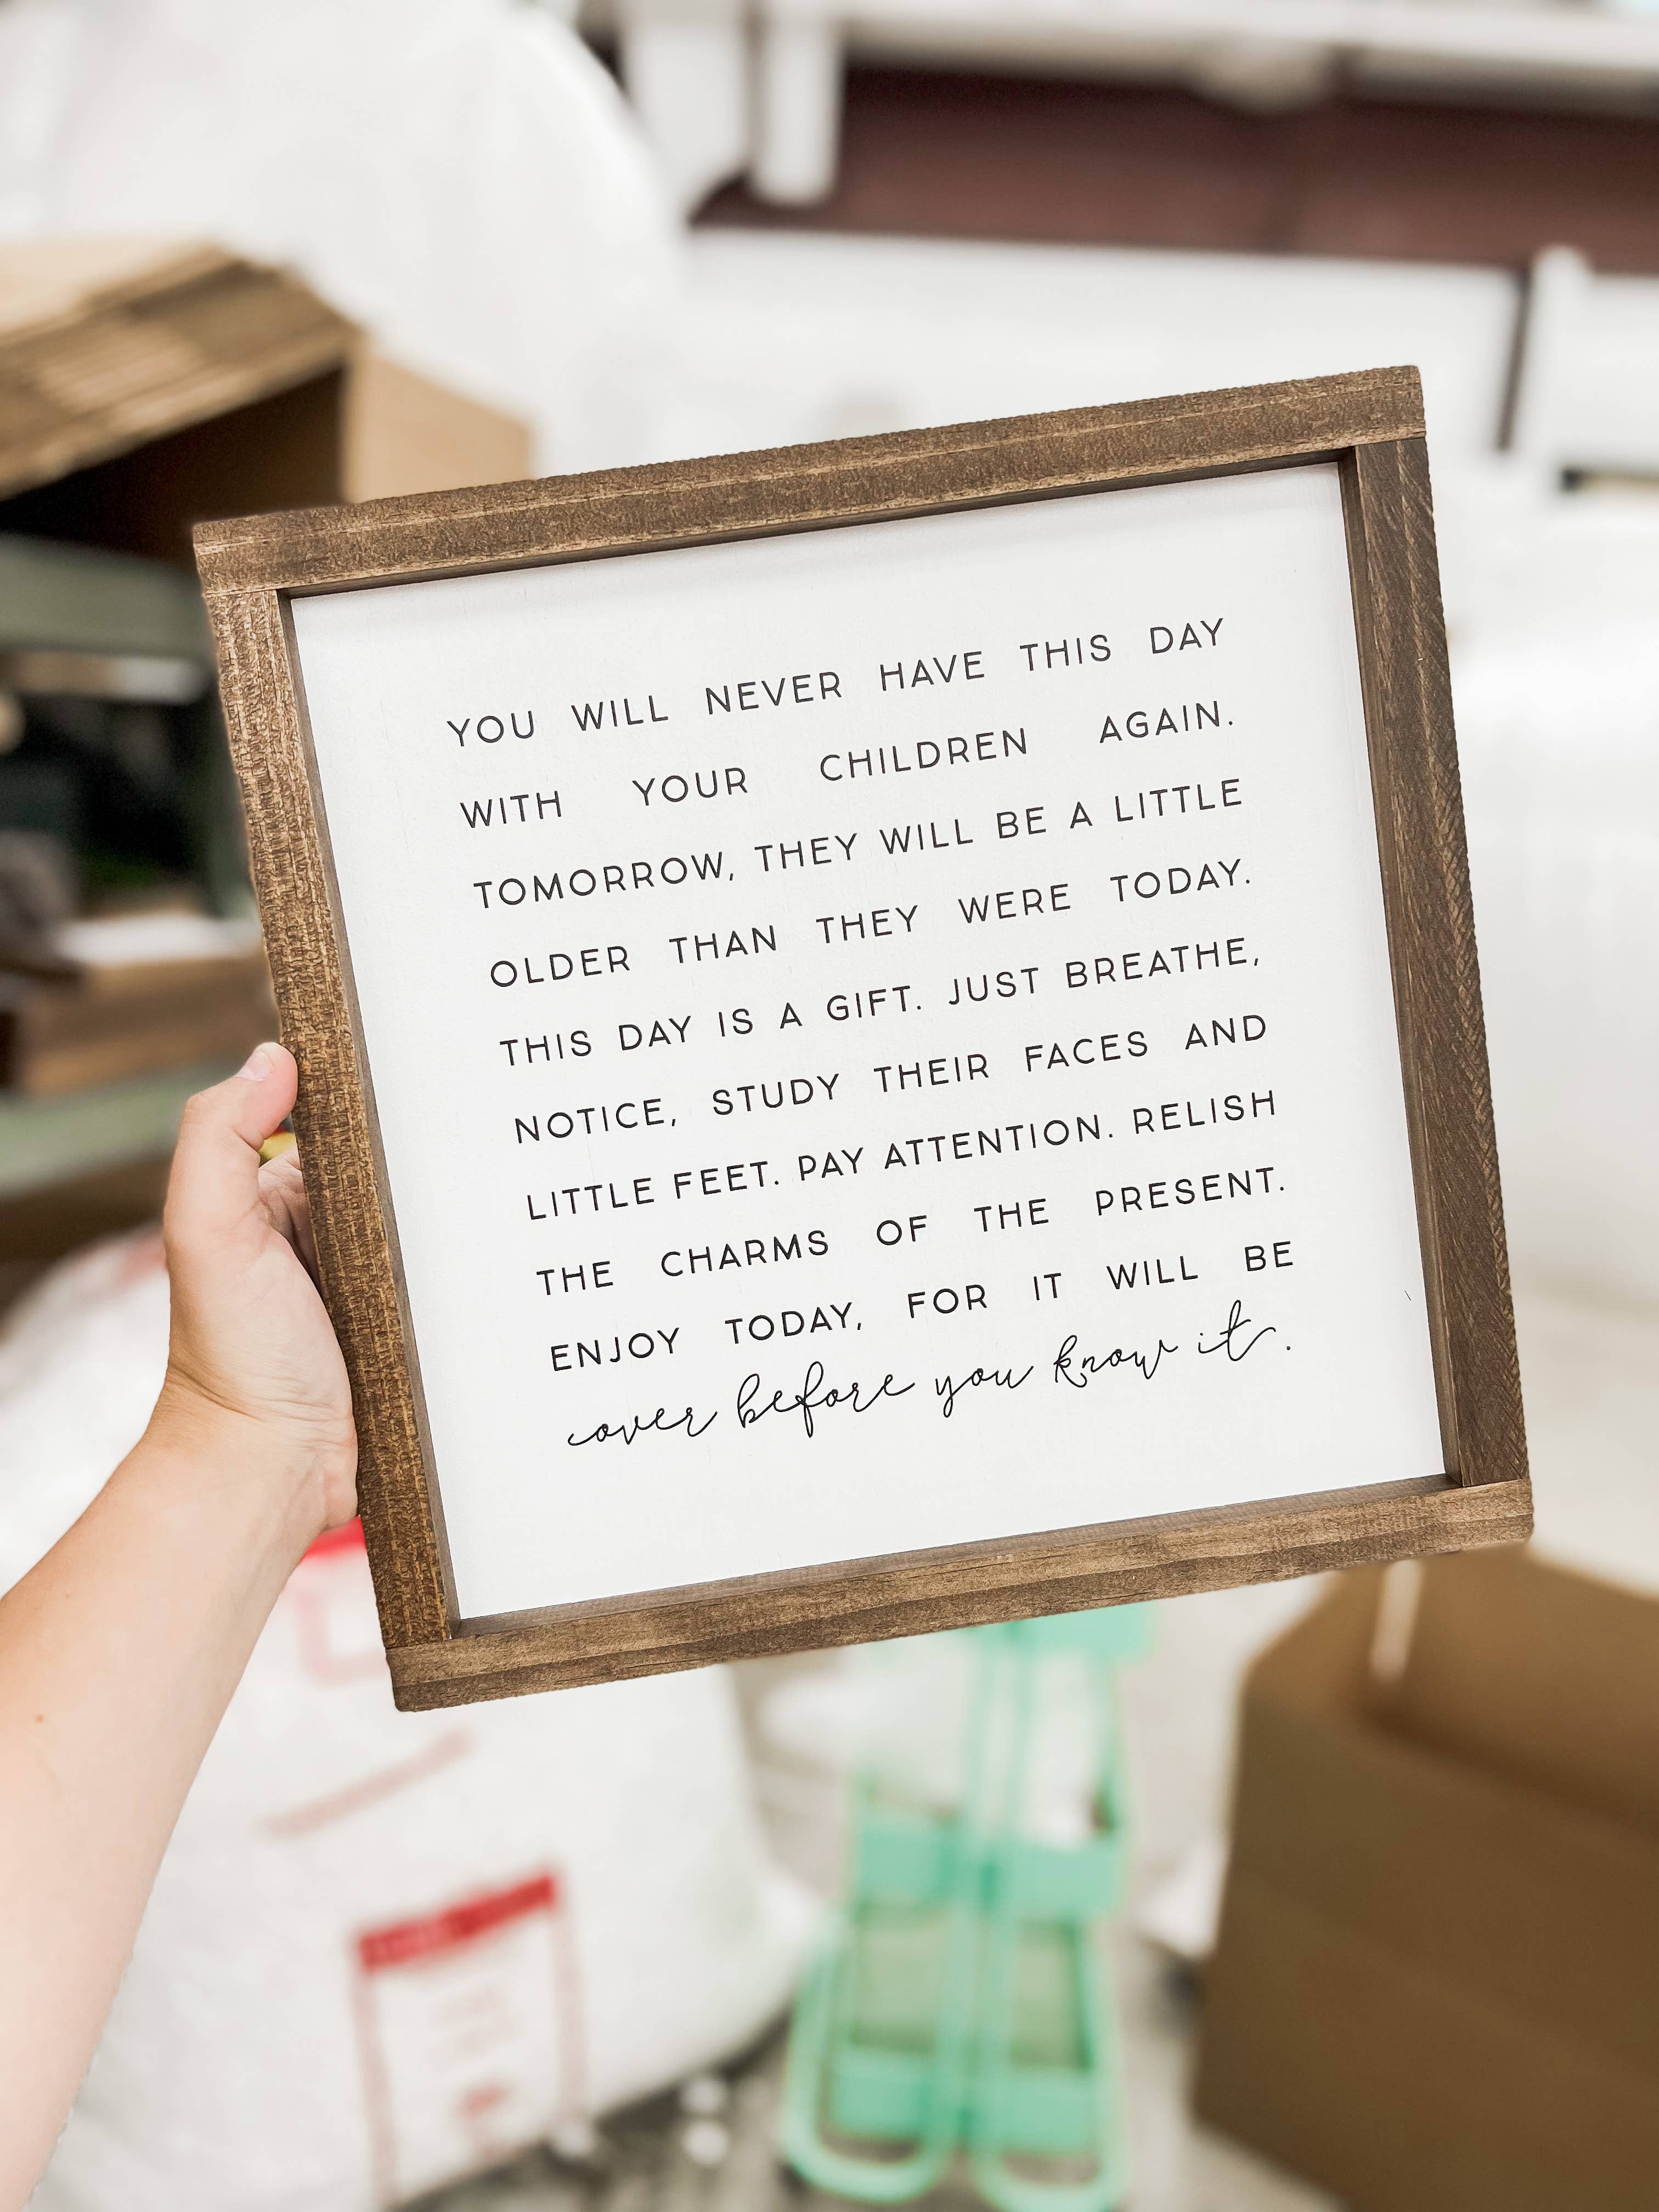 YOU WILL NEVER HAVE THIS DAY
WITH YOUR CHILDREN AGAIN.
TOMORROW, THEY WILL BE A LITTLE
OLDER THAN THEY WERE TODAY.
THIS DAY IS A GIFT. JUST BREATHE,
NOTICE, STUDY THEIR FACES AND
LITTLE FEET. PAY ATTENTION. RELISH
THE CHARMS OF THE PRESENT.
ENJOY TODAY, FOR IT WILL BE
over before you know it.